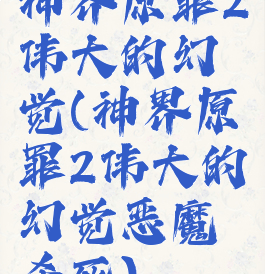 神界原罪2
伟大的幻
觉(神界原
罪2伟大的
幻觉恶魔
杀死)